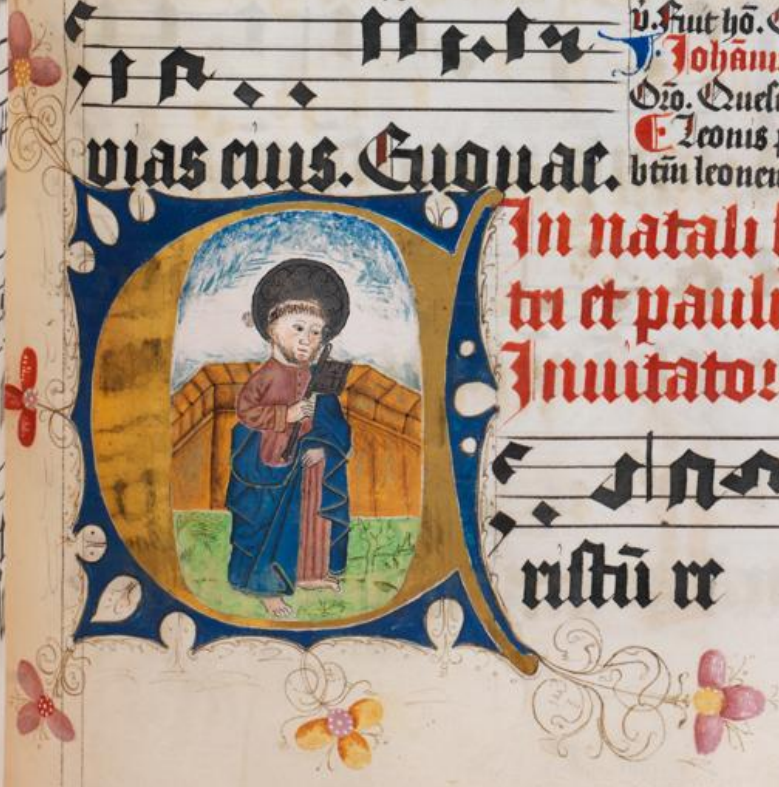 vias eius. Euouae.
v. Fuit hō.
Johānis
Orō. Quesu
Leonis p
btm̄ leonem
In natali b
tri et pauli
Inuitator
ristū re